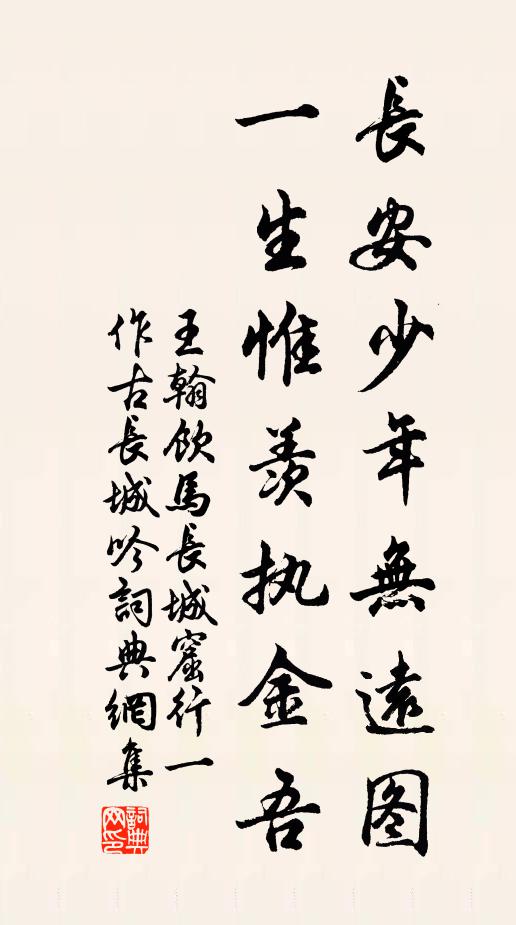 長安少年無遠图
一生惟羨执金吾
王翰飲馬長城窟行一
作古長城吟詞典網集
詞典网印